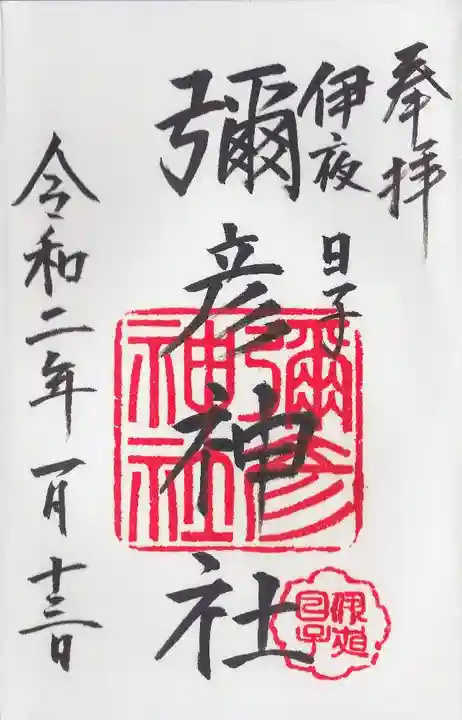 奉拝
伊夜日子
彌彦神社
令和二年一月十三日
彌彦神社
伊夜日子